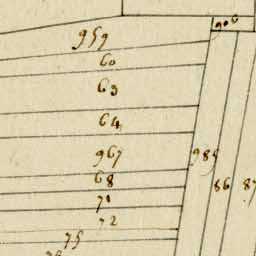 906
959
60
63
64
967
985
68
86
87
71
72
75